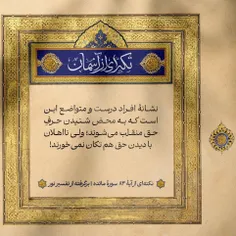 نکته‌ای از آسمان
نشانهٔ افراد درست و متواضع این
است که به محض شنیدن حرفِ
حق منقلب می‌شوند؛ ولی نااهلان
با دیدن حق هم تکان نمی‌خورند!
نکته‌ای از آیهٔ ۸۳ سورهٔ مائده | برگرفته از تفسیر نور